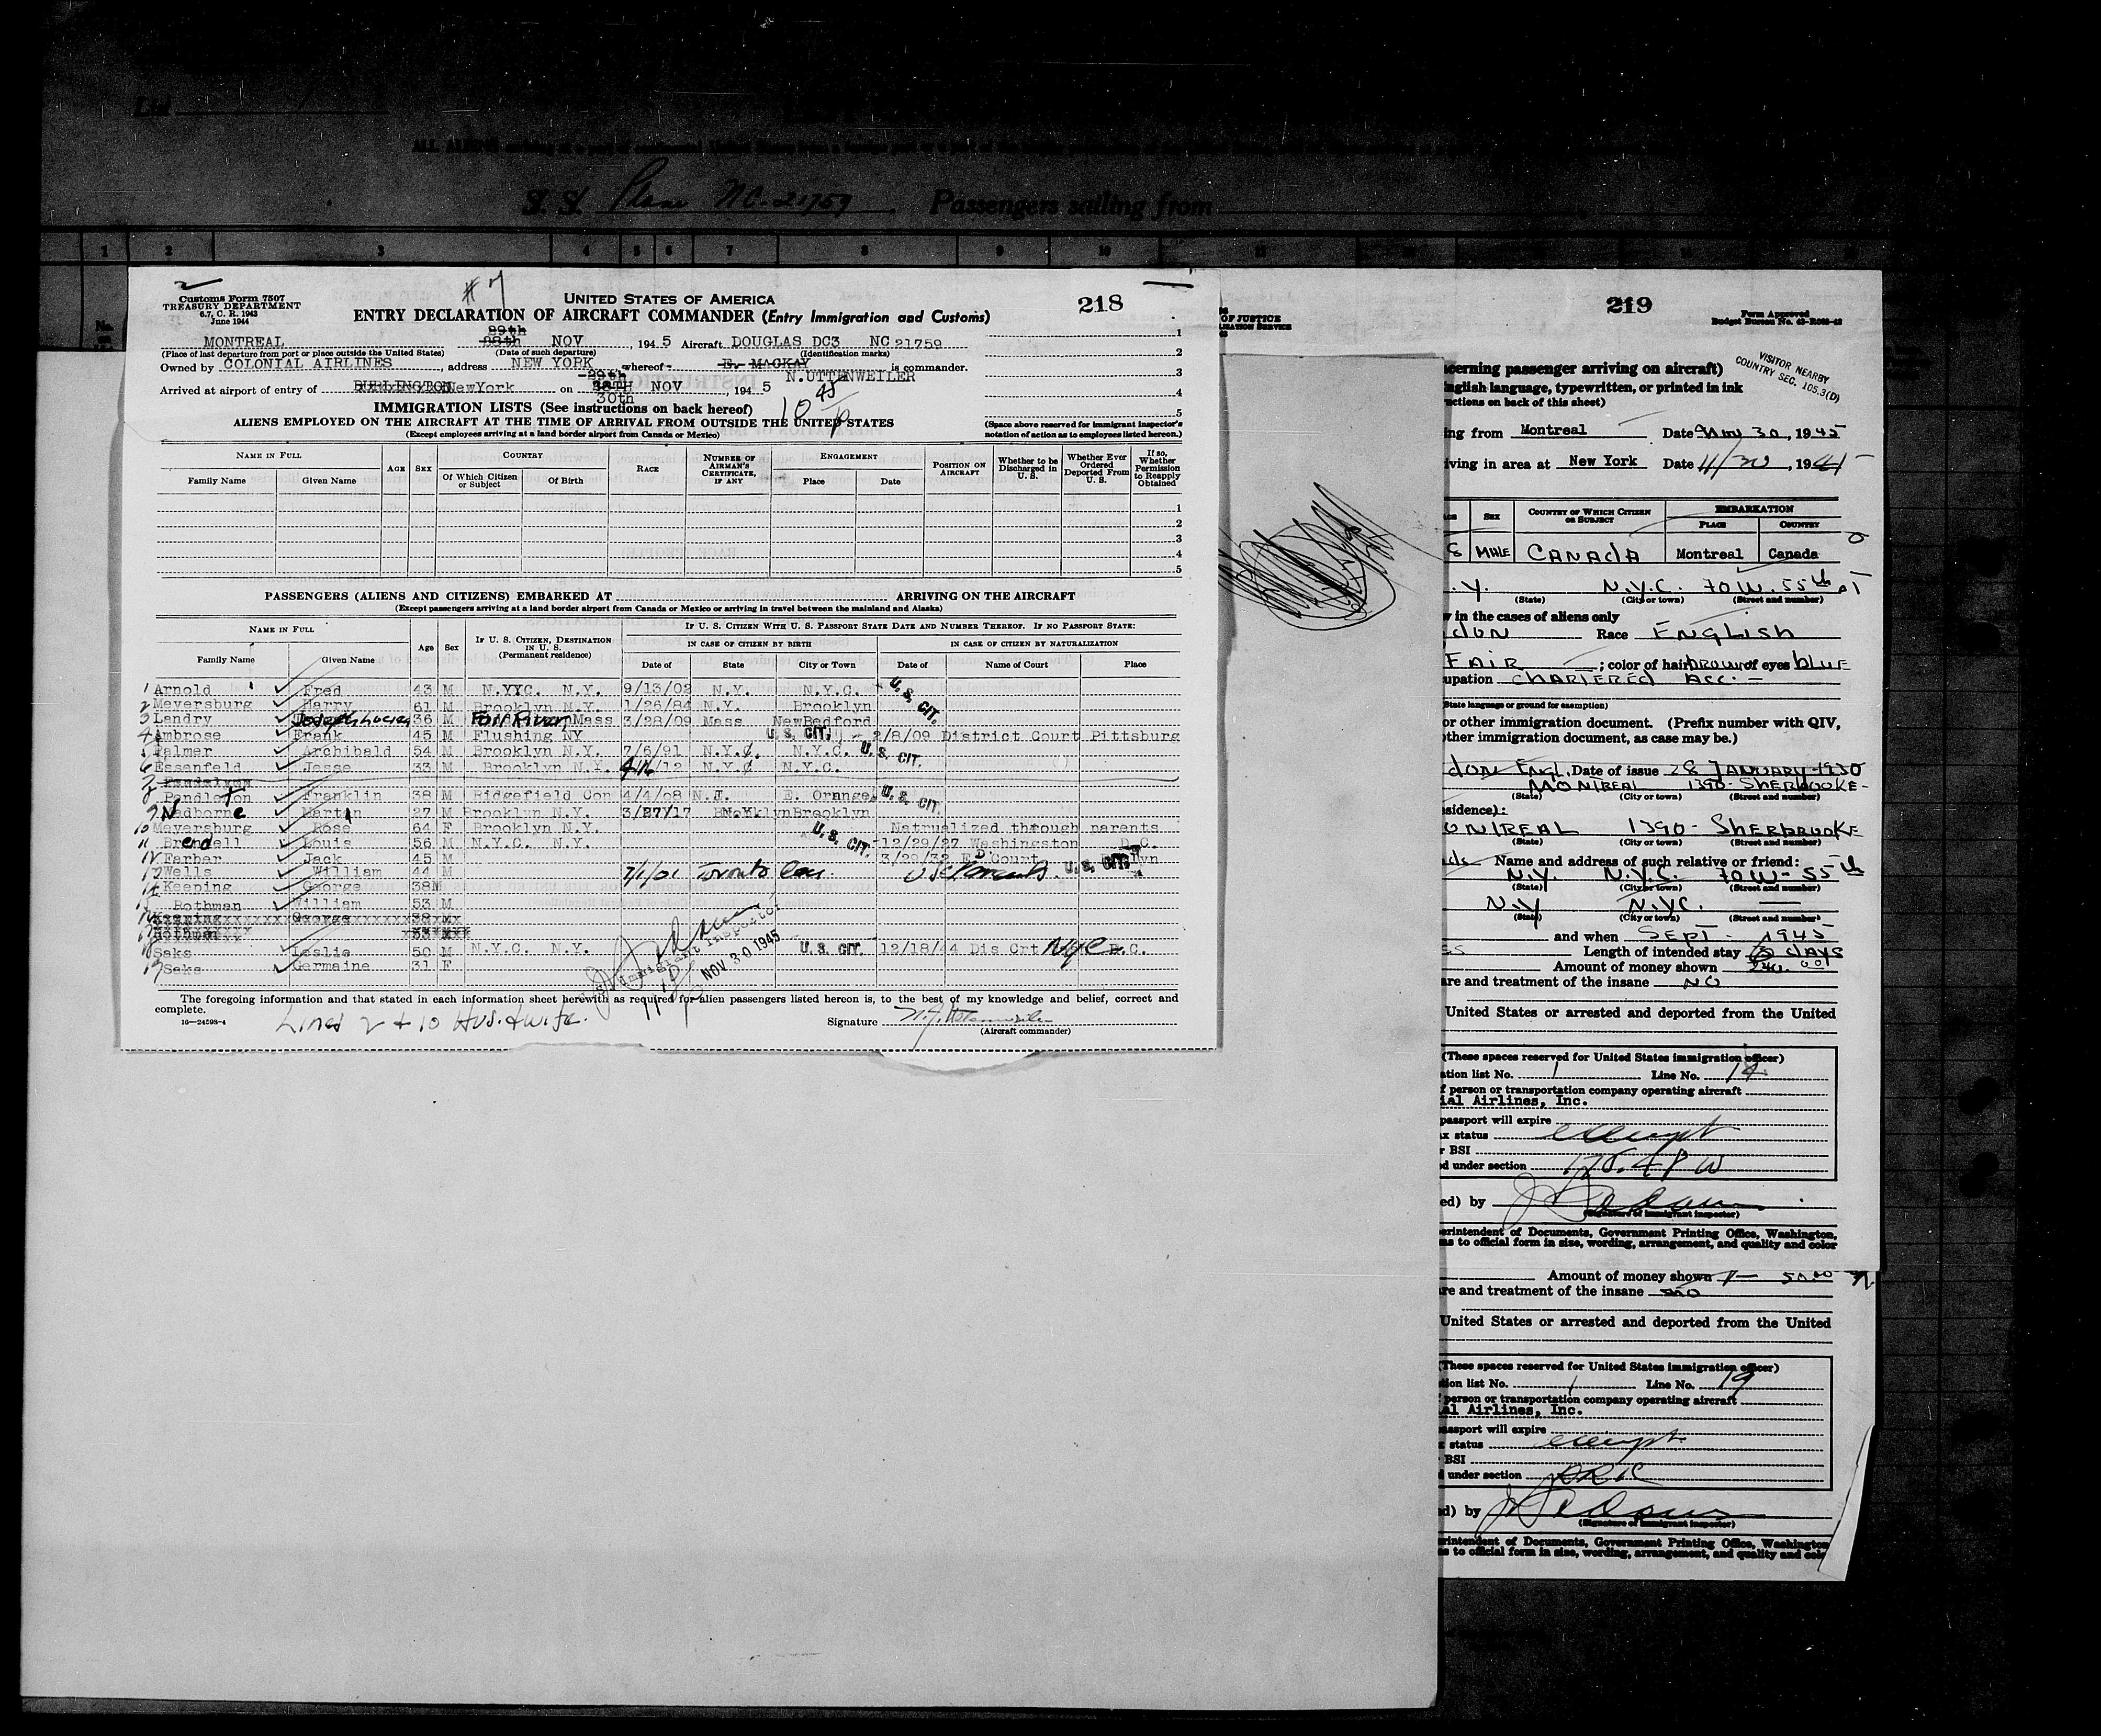 List
ALL ALIENS
S. S. Plane NC-21759 Passengers sailing from
1 2 3 4 5 6 7 8 9 10
#7
Customs Form 7507
TREASURY DEPARTMENT
6.7, C. R. 1943
June 1944
UNITED STATES OF AMERICA
218
ENTRY DECLARATION OF AIRCRAFT COMMANDER (Entry Immigration and Customs)
29th
MONTREAL 28th NOV , 194 5 Aircraft DOUGLAS DC3 NC 21759
(Place of last departure from port or place outside the United States) (Date of such departure) (Identification marks)
Owned by COLONIAL AIRLINES , address NEW YORK whereof E. MACKAY is commander.
29th N.UTTENWEILER
Arrived at airport of entry of BURLINGTON NewYork on 28TH NOV , 194 5
30th
10 45 p
IMMIGRATION LISTS (See instructions on back hereof)
ALIENS EMPLOYED ON THE AIRCRAFT AT THE TIME OF ARRIVAL FROM OUTSIDE THE UNITED STATES
(Except employees arriving at a land border airport from Canada or Mexico)
1
2
3
4
5
(Space above reserved for immigrant inspector's
notation of action as to employees listed hereon.)
NAME IN FULL
Family Name Given Name
AGE SEX
COUNTRY
Of Which Citizen or Subject Of Birth
RACE
NUMBER OF AIRMAN'S CERTIFICATE, IF ANY
ENGAGEMENT
Place Date
POSITION ON AIRCRAFT
Whether to be Discharged in U. S.
Whether Ever Ordered Deported From U. S.
If so, Whether Permission to Reapply Obtained
1
2
3
4
5
PASSENGERS (ALIENS AND CITIZENS) EMBARKED AT ARRIVING ON THE AIRCRAFT
(Except passengers arriving at a land border airport from Canada or Mexico or arriving in travel between the mainland and Alaska)
NAME IN FULL
Family Name Given Name
Age Sex
IF U. S. CITIZEN, DESTINATION IN U. S. (Permanent residence)
IF U. S. CITIZEN WITH U. S. PASSPORT STATE DATE AND NUMBER THEREOF. IF NO PASSPORT STATE:
IN CASE OF CITIZEN BY BIRTH IN CASE OF CITIZEN BY NATURALIZATION
Date of State City or Town Date of Name of Court Place
1 Arnold Fred 43 M N.YYC. N.Y. 9/13/02 N.Y. N.Y.C. U. S. CIT.
2 Meyersburg Harry 61 M Brooklyn N.Y. 1/26/84 N.Y. Brooklyn
3 Landry Joseph Lucien 36 M Fall River Mass 3/28/09 Mass NewBedford
4 Ambrose Frank 45 M Flushing NY U. S. CIT. 2/8/09 District Court Pittsburg
5 Palmer Archibald 54 M Brooklyn N.Y. 7/6/91 N.Y.C. N.Y.C. U. S. CIT.
6 Essenfeld Jesse 33 M Brooklyn N.Y. 4/16/12 N.Y.C N.Y.C.
7
8 Pendleton Franklin 38 M Ridgefield Con 4/4/08 N.J. E. Orange U. S. CIT.
9 Nedhorne Martin 27 M Brooklyn N.Y. 3/27/17 N.Y. Brooklyn
10 Meyersburg Rose 64 F Brooklyn N.Y. Natrualized through parents
11 Brendell Louis 56 M N.Y.C. N.Y. U. S. CIT. 12/29/27 Washington D.C.
12 Farber Jack 45 M 3/29/32 E D Court
13 Wells William 44 M 7/1/01 Toronto Can. U S Parents U. S. CIT.
14 Keeping George 38M
15 Rothman William 53 M
16 Keeping George 38 M
17 Rothman 53
18 Saks Leslie 50 M N.Y.C. N.Y. U. S. CIT. 12/18/44 Dis Crt NYC D.C.
19 Saks Germaine 31 F
Immigrant Inspector
NOV 30 1945
The foregoing information and that stated in each information sheet herewith as required for alien passengers listed hereon is, to the best of my knowledge and belief, correct and
complete.
16—24598-4
Lines 2 + 10 Hus. & wife.
Signature
(Aircraft commander)
OF JUSTICE
219
Form Approved
Budget Bureau No. 43-R
VISITOR NEARBY
COUNTRY SEC. 105.3(D)
cerning passenger arriving on aircraft)
nglish language, typewritten, or printed in ink
ctions on back of this sheet)
ing from Montreal Date Nov 30, 1945
iving in area at New York Date 11/30, 1945
SEX COUNTRY OF WHICH CITIZEN OR SUBJECT EMBARKATION
PLACE COUNTRY
8 MALE CANADA Montreal Canada
.Y. N.Y.C. 70 W. 55th ST
(State) (City or town) (Street and number)
w in the cases of aliens only
don Race ENGLISH
FAIR ; color of hair brown of eyes blue
upation CHARTERED ACC.
(State language or ground for exemption)
or other immigration document. (Prefix number with QIV,
other immigration document, as case may be.)
don ENGL. Date of issue 28 JANUARY 1930
MONTREAL 1390- SHERBROOKE-
(State) (City or town) (Street and number)
esidence):
ONTREAL 1390- SHERBROOKE
(State) (City or town) (Street and number)
Name and address of such relative or friend:
N.Y. N.Y.C. 70 W- 55th
(State) (City or town) (Street and number)
N.Y N.Y.C.
(State) (City or town) (Street and number)
and when SEPT- 1945
Length of intended stay days
Amount of money shown
are and treatment of the insane NO
United States or arrested and deported from the United
(These spaces reserved for United States immigration officer)
ation list No. 1 Line No. 14
f person or transportation company operating aircraft
ial Airlines, Inc.
passport will expire
x status exempt
r BSI
d under section
ed) by
(Signature of immigrant inspector)
erintendent of Documents, Government Printing Office, Washington,
as to official form in size, wording, arrangement, and quality and color
Amount of money shown 50.00
re and treatment of the insane no
United States or arrested and deported from the United
(These spaces reserved for United States immigration officer)
ion list No. 1 Line No. 19
person or transportation company operating aircraft
al Airlines, Inc.
assport will expire
status exempt
BSI
under section
d) by
(Signature of immigrant inspector)
rintendent of Documents, Government Printing Office, Washington
s to official form in size, wording, arrangement, and quality and colo